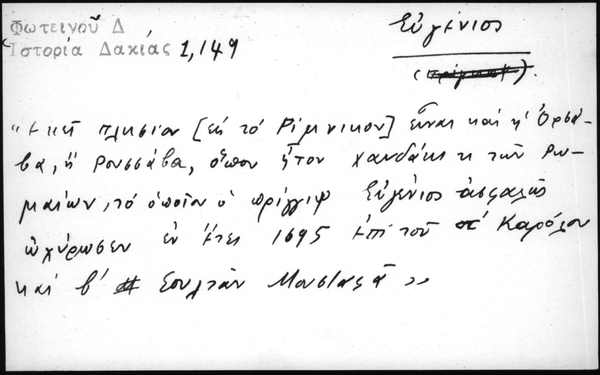 Φωτεινοῦ Δ
Ἱστορία Δακίας 1,149
Εὐγένιος
( ).
" ἐκεῖ πλησίον [εἰς τό Ρίμνικον] εἶναι καί ἡ Ὀρσά-
βα, ἤ Ρουσσάβα, ὅπου ἦτον χανδάκι τῶν Ρω-
μαίων, τό ὁποῖον ὁ πρίγγιψ Εὐγένιος ἀσφαλῶς
ὠχύρωσεν ἐν ἔτει 1695 ἐπί τοῦ Καρόλου
καί β' Σουλτάν Μουσταφᾶ "